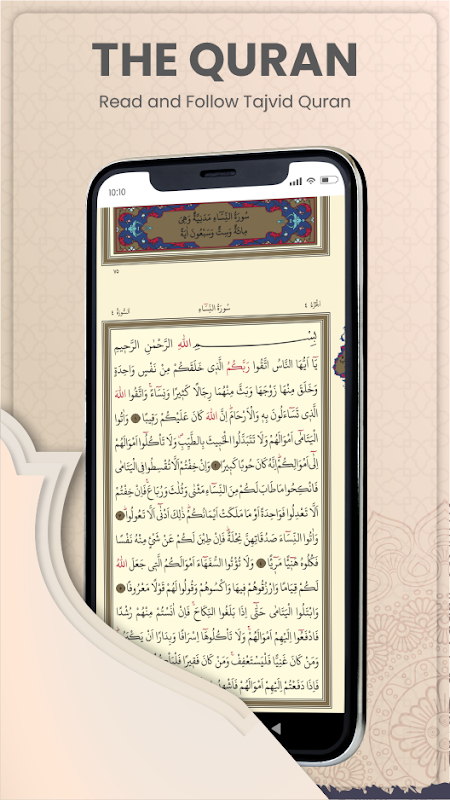 THE QURAN
Read and Follow Tajvid Quran
10:10
سُورَةُ النِّسَاءِ مَدَنِيَّةٌ وَهِيَ
مِائَةٌ وَسِتٌّ وَسَبْعُونَ اٰيَةً
٧٥
اَلْجُزْءُ ٤ سُورَةُ النِّسَاءِ اَلسُّورَةُ ٤
بِسْــــــمِ اللّٰهِ الرَّحْمٰنِ الرَّحِيمِ
يَٓا اَيُّهَا النَّاسُ اتَّقُوا رَبَّكُمُ الَّذِي خَلَقَكُمْ مِنْ نَفْسٍ وَاحِدَةٍ
وَخَلَقَ مِنْهَا زَوْجَهَا وَبَثَّ مِنْهُمَا رِجَالًا كَثِيرًا وَنِسَٓاءًۚ وَاتَّقُوا اللّٰهَ
الَّذِي تَسَٓاءَلُونَ بِهِ وَالْاَرْحَامَۜ اِنَّ اللّٰهَ كَانَ عَلَيْكُمْ رَقِيبًا ۝ وَاٰتُوا
الْيَتَامٰٓى اَمْوَالَهُمْ وَلَا تَتَبَدَّلُوا الْخَبِيثَ بِالطَّيِّبِۖ وَلَا تَأْكُلُٓوا اَمْوَالَهُمْ
اِلٰٓى اَمْوَالِكُمْۜ اِنَّهُ كَانَ حُوبًا كَبِيرًا ۝ وَاِنْ خِفْتُمْ اَلَّا تُقْسِطُوا فِي الْيَتَامٰى
فَانْكِحُوا مَا طَابَ لَكُمْ مِنَ النِّسَٓاءِ مَثْنٰى وَثُلٰثَ وَرُبَاعَۚ فَاِنْ خِفْتُمْ
اَلَّا تَعْدِلُوا فَوَاحِدَةً اَوْ مَا مَلَكَتْ اَيْمَانُكُمْۜ ذٰلِكَ اَدْنٰٓى اَلَّا تَعُولُواۜ ۝
وَاٰتُوا النِّسَٓاءَ صَدُقَاتِهِنَّ نِحْلَةًۜ فَاِنْ طِبْنَ لَكُمْ عَنْ شَيْءٍ مِنْهُ نَفْسًا
فَكُلُوهُ هَنِٓيـًٔا مَرِٓيـًٔا ۝ وَلَا تُؤْتُوا السُّفَهَٓاءَ اَمْوَالَكُمُ الَّتِي جَعَلَ اللّٰهُ
لَكُمْ قِيَامًا وَارْزُقُوهُمْ فِيهَا وَاكْسُوهُمْ وَقُولُوا لَهُمْ قَوْلًا مَعْرُوفًا ۝
وَابْتَلُوا الْيَتَامٰى حَتّٰٓى اِذَا بَلَغُوا النِّكَاحَۚ فَاِنْ اٰنَسْتُمْ مِنْهُمْ رُشْدًا
فَادْفَعُٓوا اِلَيْهِمْ اَمْوَالَهُمْۚ وَلَا تَأْكُلُوهَٓا اِسْرَافًا وَبِدَارًا اَنْ
وَمَنْ كَانَ غَنِيًّا فَلْيَسْتَعْفِفْۚ وَمَنْ كَانَ فَقِيرًا
فَاِذَا دَفَعْتُمْ اِلَيْهِمْ اَمْوَالَهُمْ